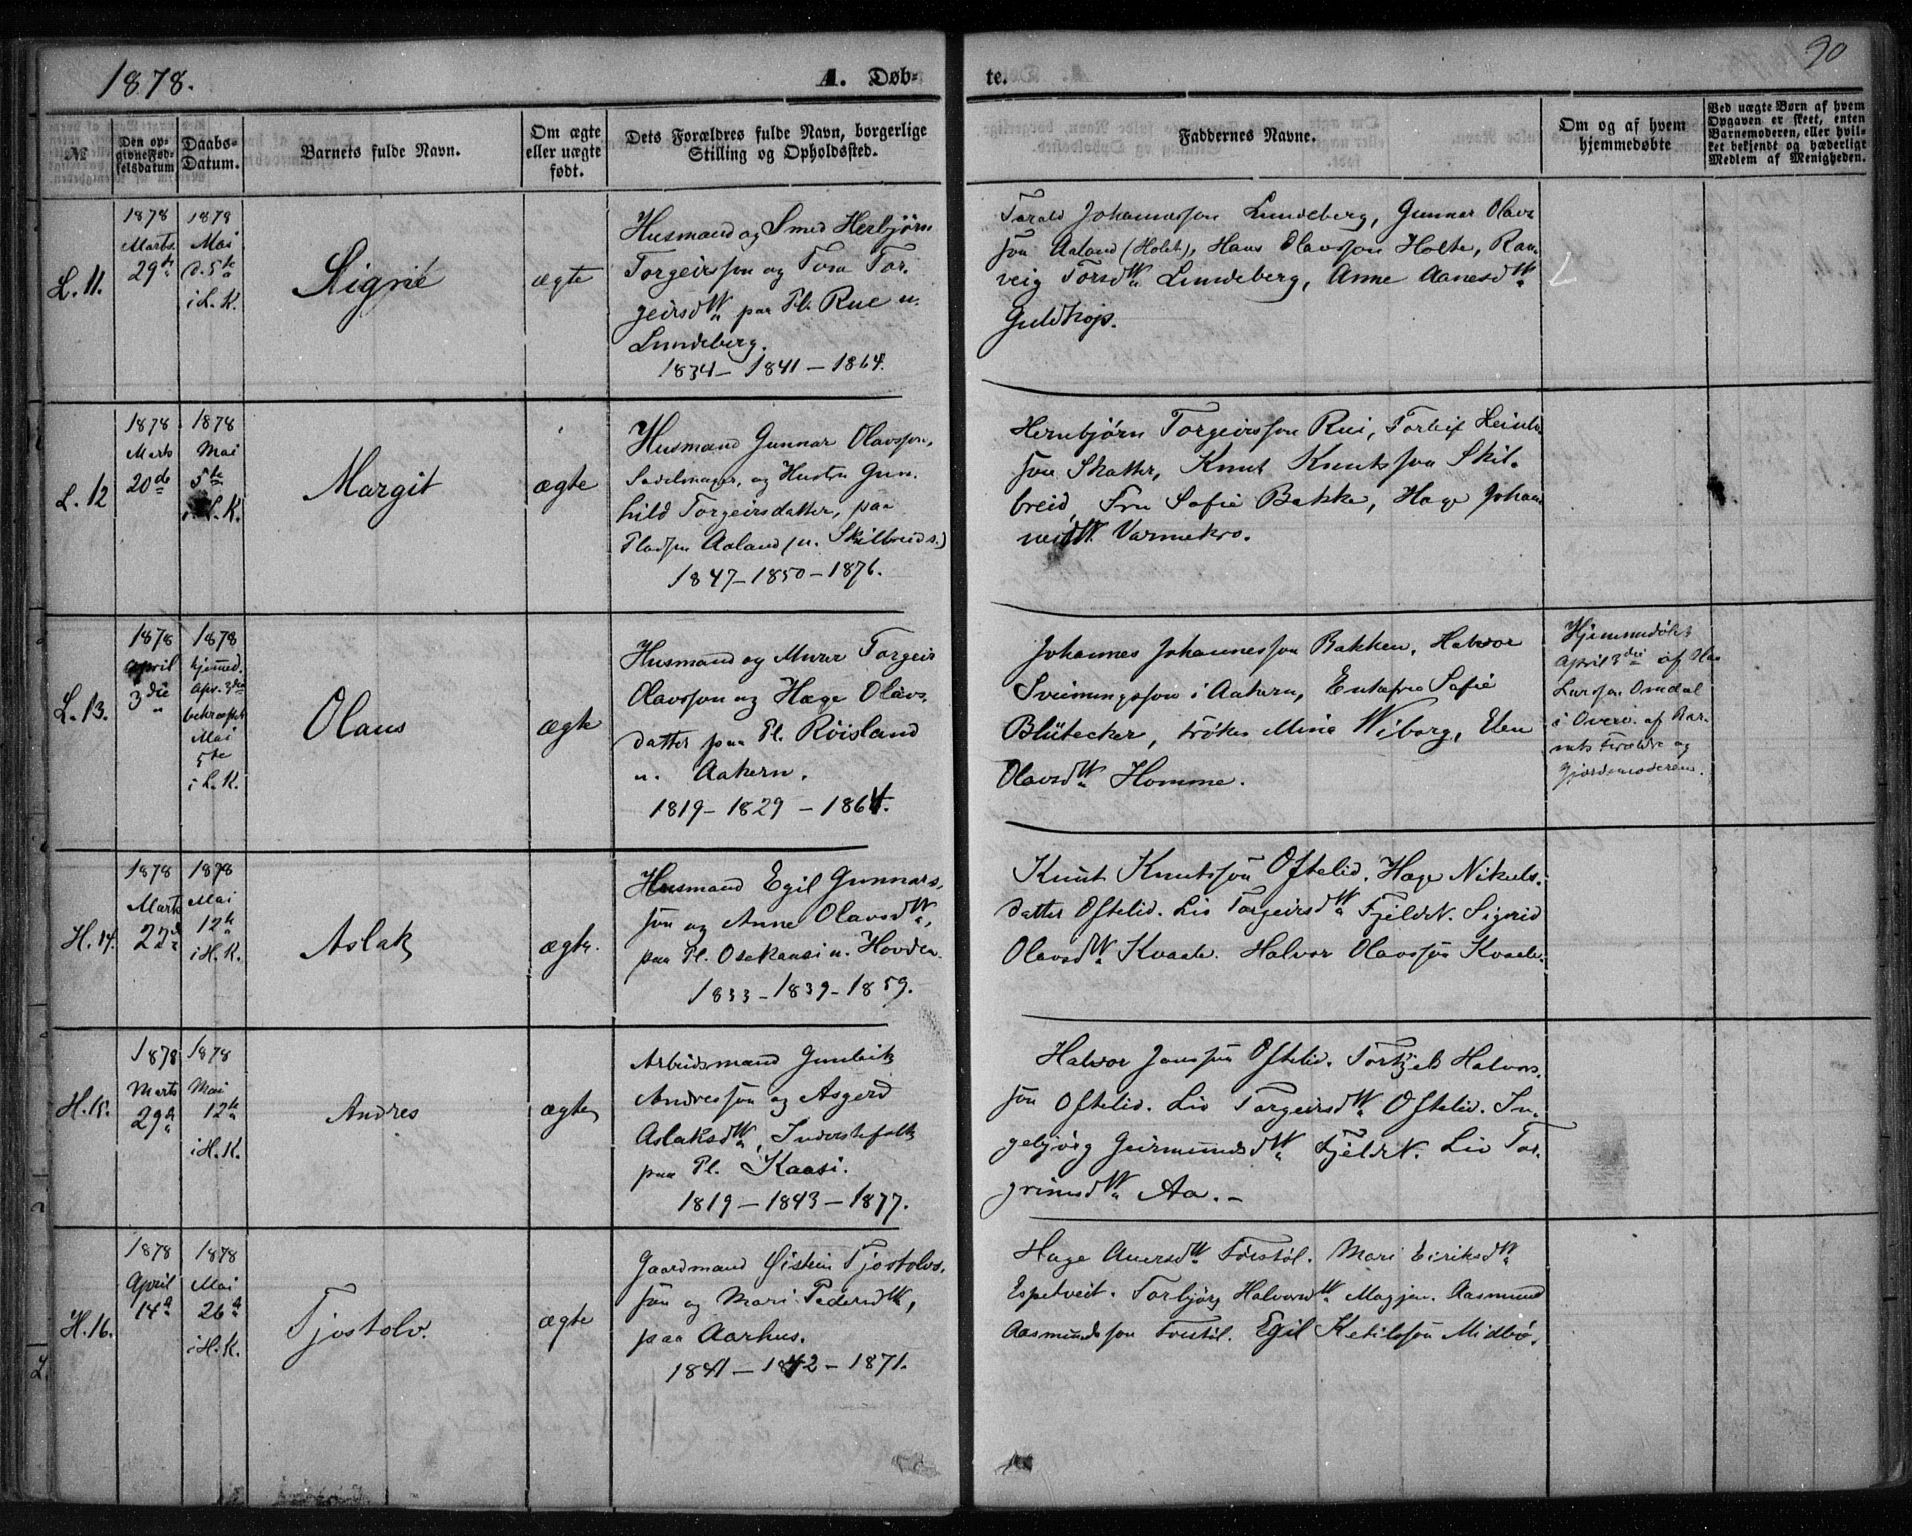 1878.
A. Døb-
te.
90
№
Den op-
givne Fød-
selsdatum
Daabs-
Datum.
Barnets fulde Navn.
Om ægte
eller uægte
født.
Dets Forældres fulde Navn, borgerlige
Stilling og Opholdssted.
Faddernes Navne.
Om og af hvem
hjemmedøbte
Ved uægte Børn af hvem
Opgaven er skeet, enten
Barnemoderen, eller hvil-
ket bekjendt og hæderligt
Medlem af Menigheden.
L. 11.
1878
Marts
29de
1878
Mai
d. 5te
i L. K.
Signe
ægte
Husmand og Smed Herbjørn
Torgeirsson og Tone Tor-
geirsdtr paa Pl. Rue u.
Lundeberg.
1834 - 1841 - 1864.
Johannesson Lundeberg, Gunnar Olavs-
son Aaland (Holt), Hans Olavsson Holte, Ran-
veig Torsdtr Lundeberg, Anne Aanesdtr
Guldhop.
L. 12
1878
Marts
20de
1878
Mai
5te
i L. K.
Margit
ægte
Husmand Gunnar Olavsson,
Sadelmager, og Hustru Gun-
hild Torgeirsdatter, paa
Pladsen Aaland (u. Skilbreids.)
1847 - 1850 - 1876.
Hernbjørn Torgeirsson Rui, Torleif
son Skatter, Knut Knutsson Skil-
breid, Fru Sofie Bakke, Hæge Johan-
nesdtr. Varmekro.
L. 13.
1878
April
3die
1878
hjemmed.
Apr. 3die
bekræftet
Mai
5te
i L. K.
Olaus
ægte
Husmand og Murer Torgeir
Olavsson og Hæge Olavs-
datter paa Pl. Röisland
u. Aakern.
1819 - 1829 - 1864.
Johannes Johannesson Bakken, Halvor
Sveinungsson i Aakern, Enkefru Sofie
Blütecker, frøken Mina Wiborg, Elen
Olavsdtr Homme.
Hjemmedøbt
April 3die af
Larsen Omdal
i Overv. af Bar-
nets Forældre og
Gjordemoderen.
H. 14.
1878
Marts
22de
1878
Mai
12te
i H. K.
Aslak
ægte.
Husmand Egil Gunnars-
son og Anne Olavsdtr,
paa Pl. Osekaasi u. Hovden.
1833 - 1839 - 1859.
Knut Knutsson Oftelid. Hæge Nikuls-
datter Oftelid. Liv Torgeirsdtr Fjeldst. Sigrid
Olavsdtr Kvaale. Halvor Olavsson Kvaale.
H. 15.
1878
Marts
29de
1878
Mai
12te
i H. K.
Andres
ægte
Arbeidsmand Gunleik
Andresson og Asgerd
Aslaksdtr, Inderstefolk
paa Pl. Kaasi.
1819 - 1843 - 1877.
Halvor Jonsson Oftelid. Torkjel Halvors-
son Oftelid. Liv Torgeirsdtr Oftelid. In-
gebjørg Geirmundsdtr Fjeldst. Liv Tor-
grimsdtr Aa. -
H. 16.
1878
April
14de
1878
Mai
26de
i H. K.
Tjostolv.
ægte
Gaardmand Øistein Tjostolvs-
son og Mari Pedersdtr,
paa Aarhus.
1841 - 1842 - 1871.
Hæge Aanersdtr Trestöl. Mari Eiriksdtr
Espetveit. Torbjørg Halvorsdtr Mogjen. Aasmund
Aasmundsson Trestöl. Egil Ketilsson Midbø.